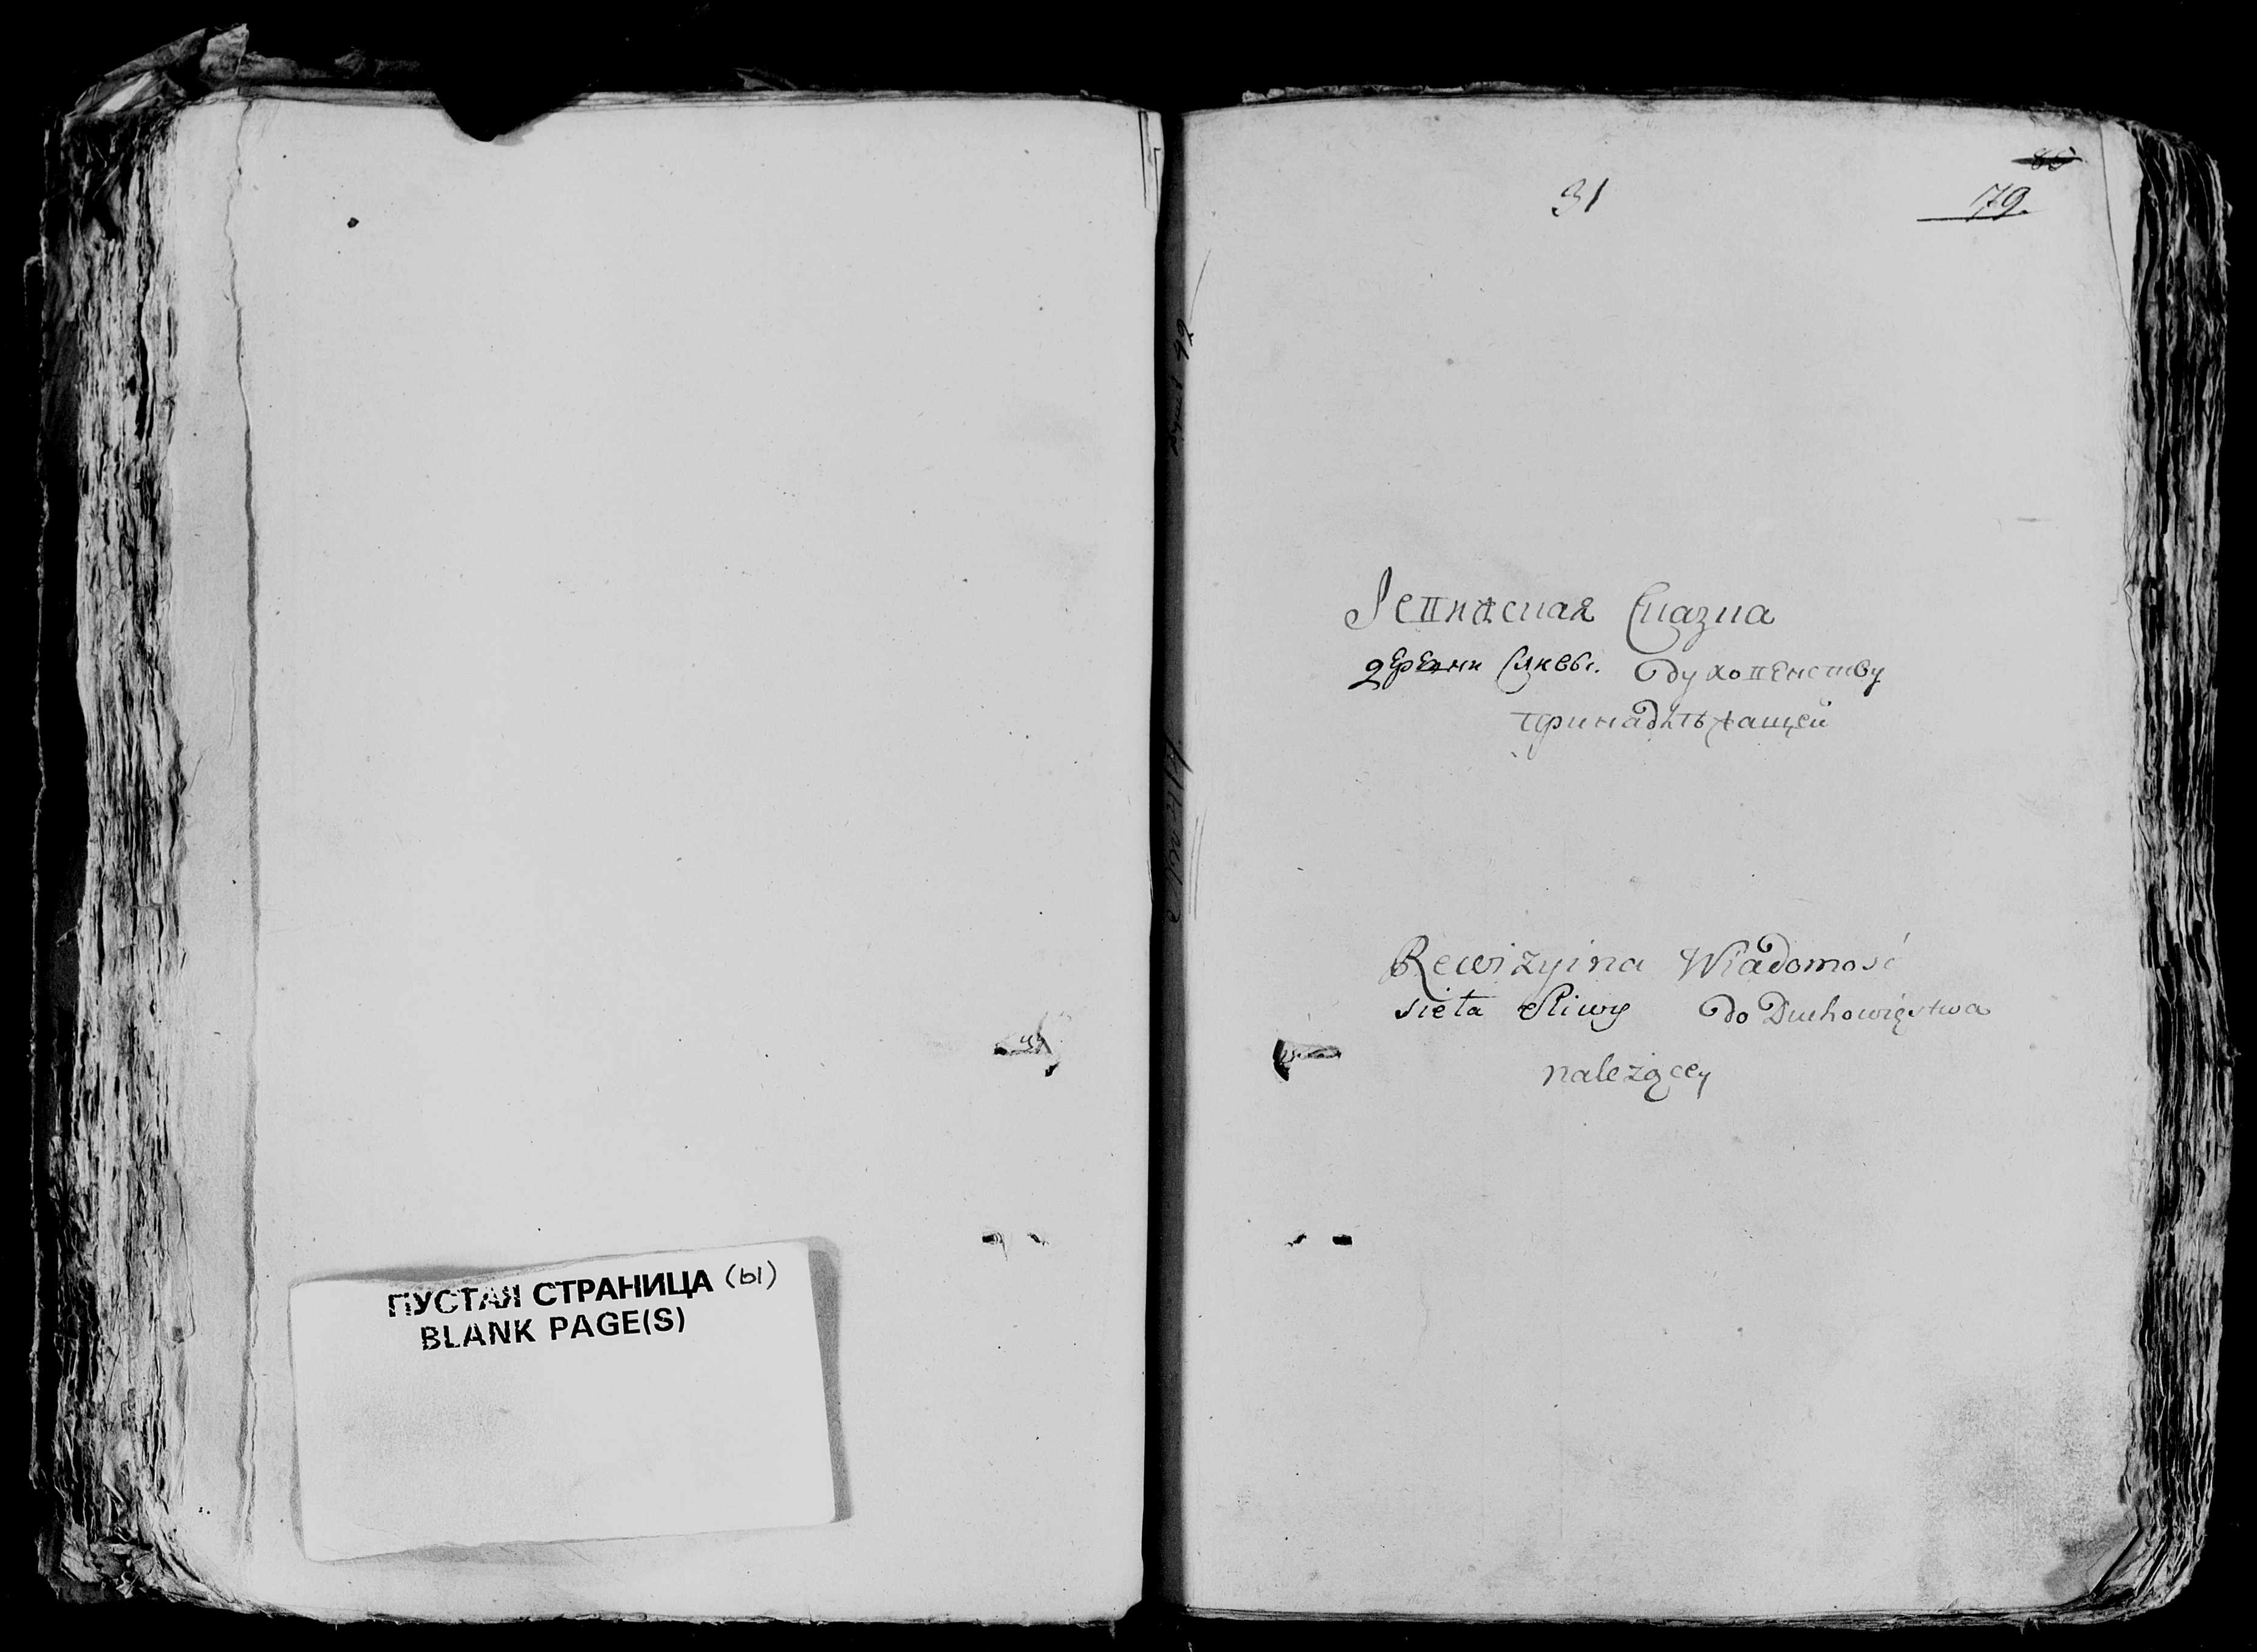 ПУСТАЯ СТРАНИЦА (ы)
BLANK PAGE(S)
31
79.
Ревизская Сказка
деревни Сливы. духовенству
принадлежащей
Rewizyina Wiadomosć
sieła Sliwy do Duchowięstwa
należącey